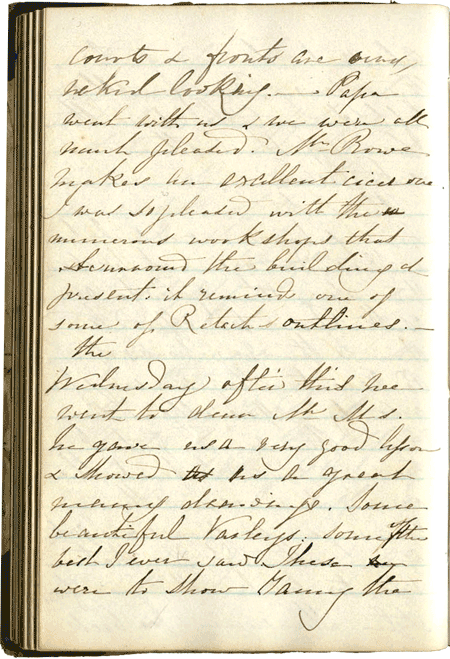 courts & fronts are very
naked looking. — Papa
went with us & we were all
much pleased. Mr Rowe
makes an excellent cicerone
I was so pleased with the
numerous workshops that
surround the building at
present. it remind one of
some of Retsch's outlines. —
the
Wednesday after this we
went to dear Mr Ms.
he gave us a very good lesson
& showed us a great
many drawings. Some
beautiful Varleys. some of the
best I ever saw These
were to show Fanny the